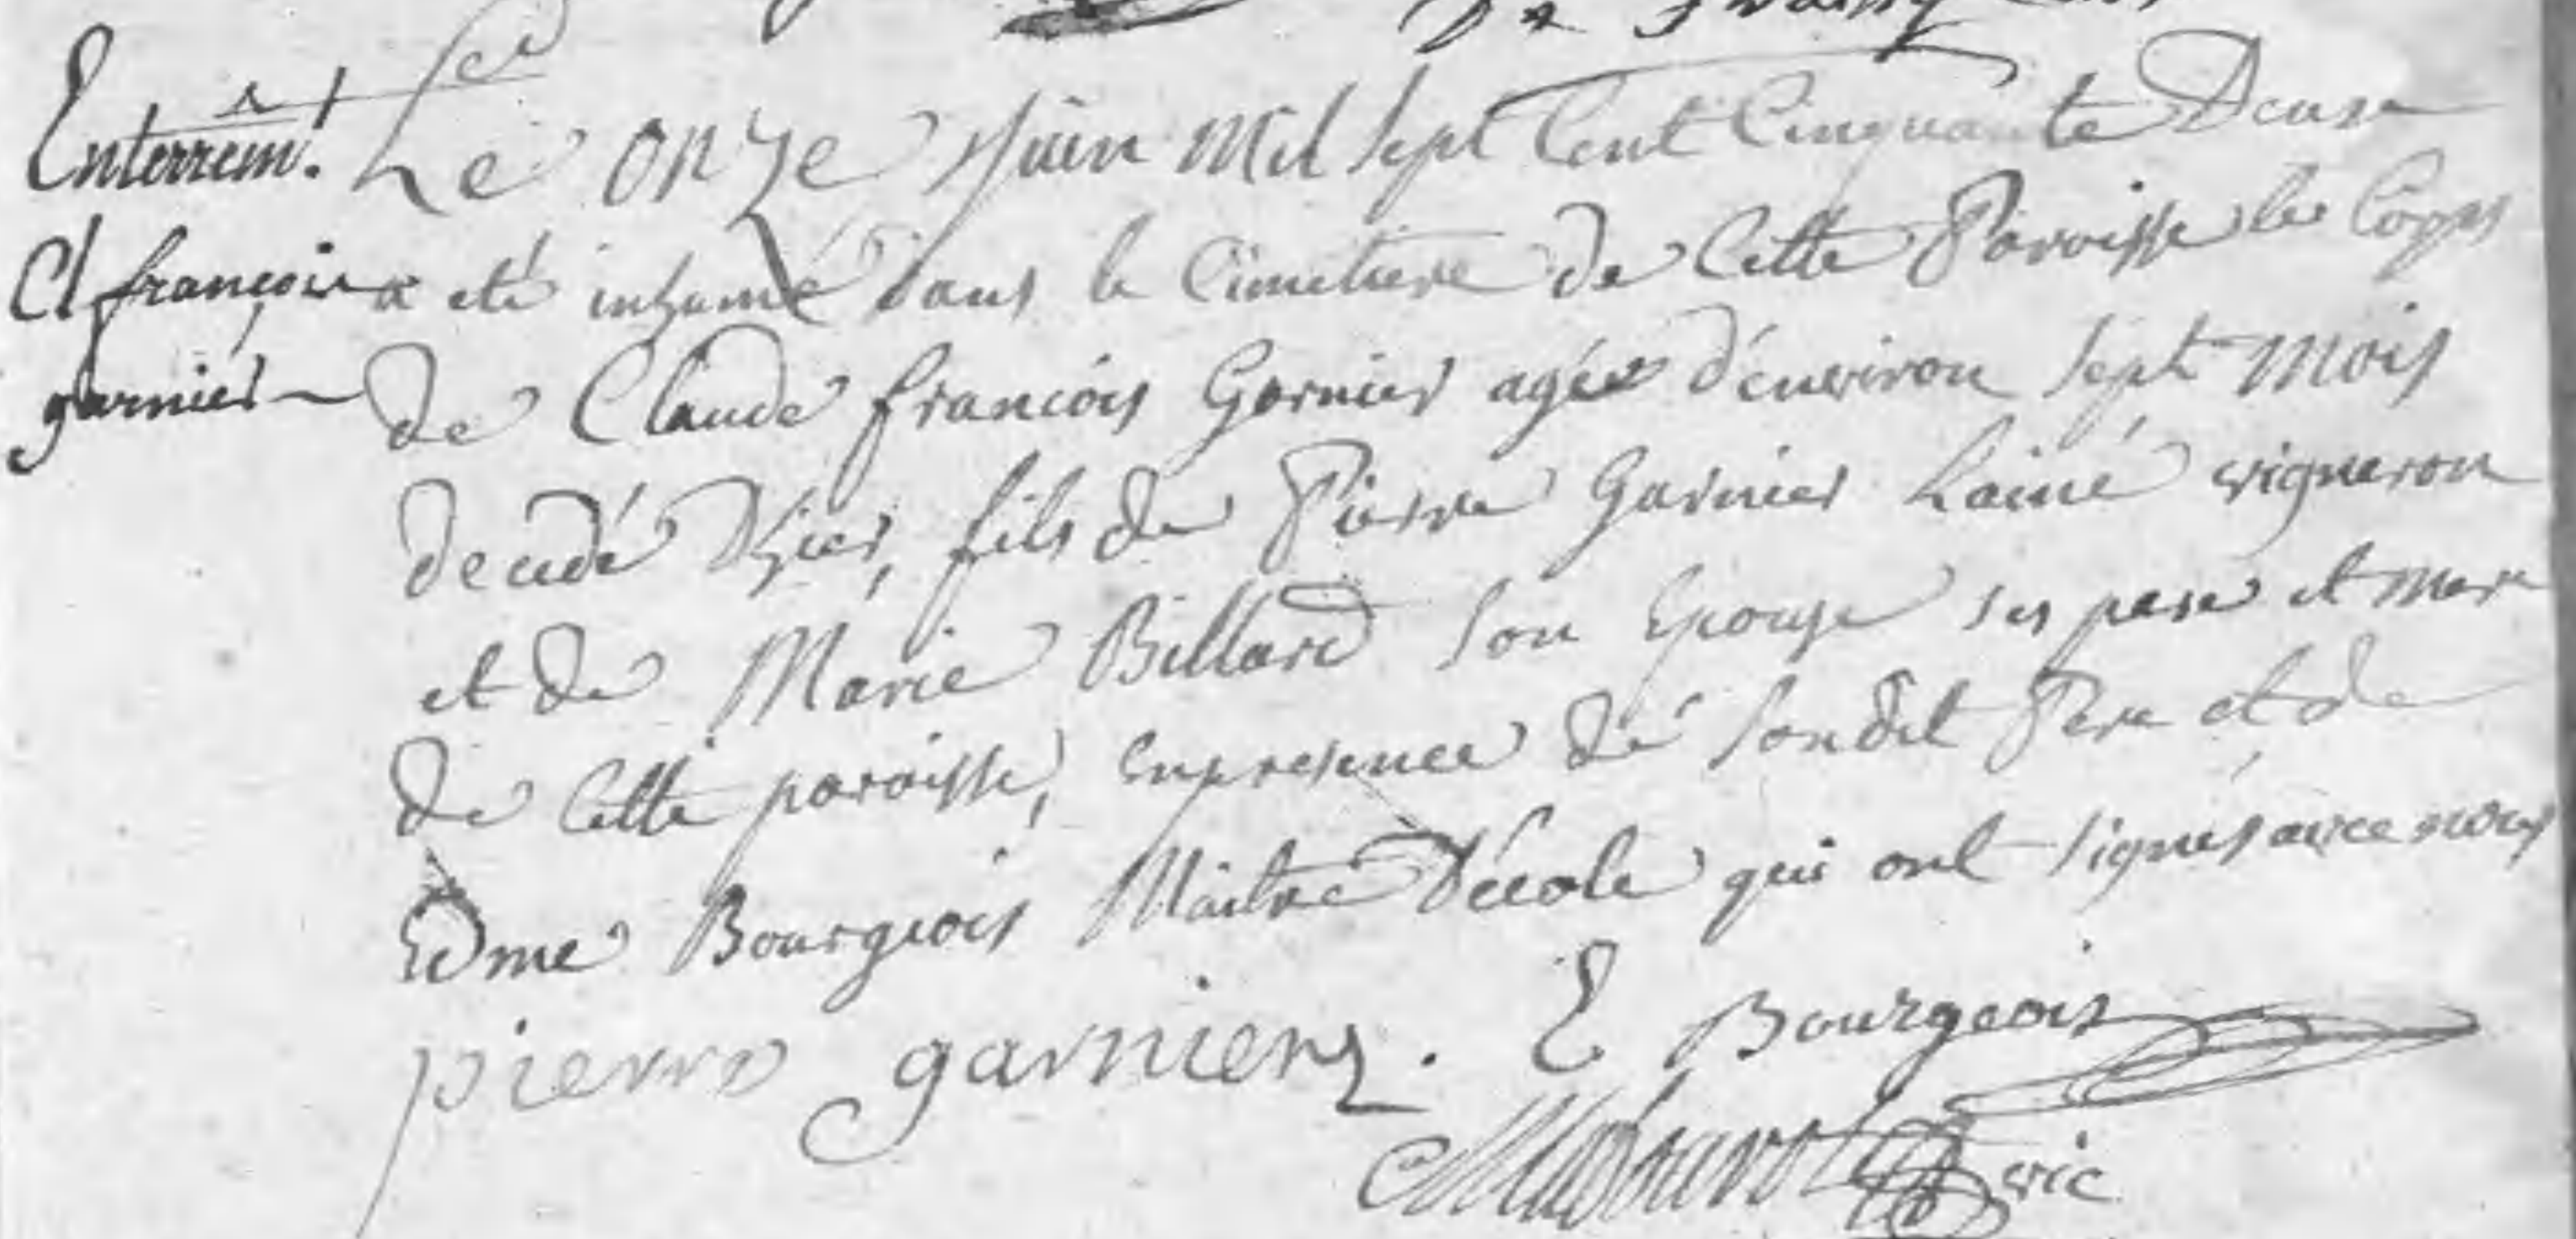 Enterrem.t
Cl françois
garnier
Le onze Juin mil sept Cent Cinquante Deux
a eté inhumé dans le Cimetiere de Cette Paroisse le Corps
de Claude francois Garnier agée d'environ sept mois
decedé D'hier, fils de Pierre Garnier Lainé vigneron
et de Marie Billard son Epouse ses pere et mere
de Cette paroisse, en presence de son dit Pere et de
Edme Bourgeois Maitre D'école qui ont signés avec nous
pierre garnier. E Bourgeois
vic